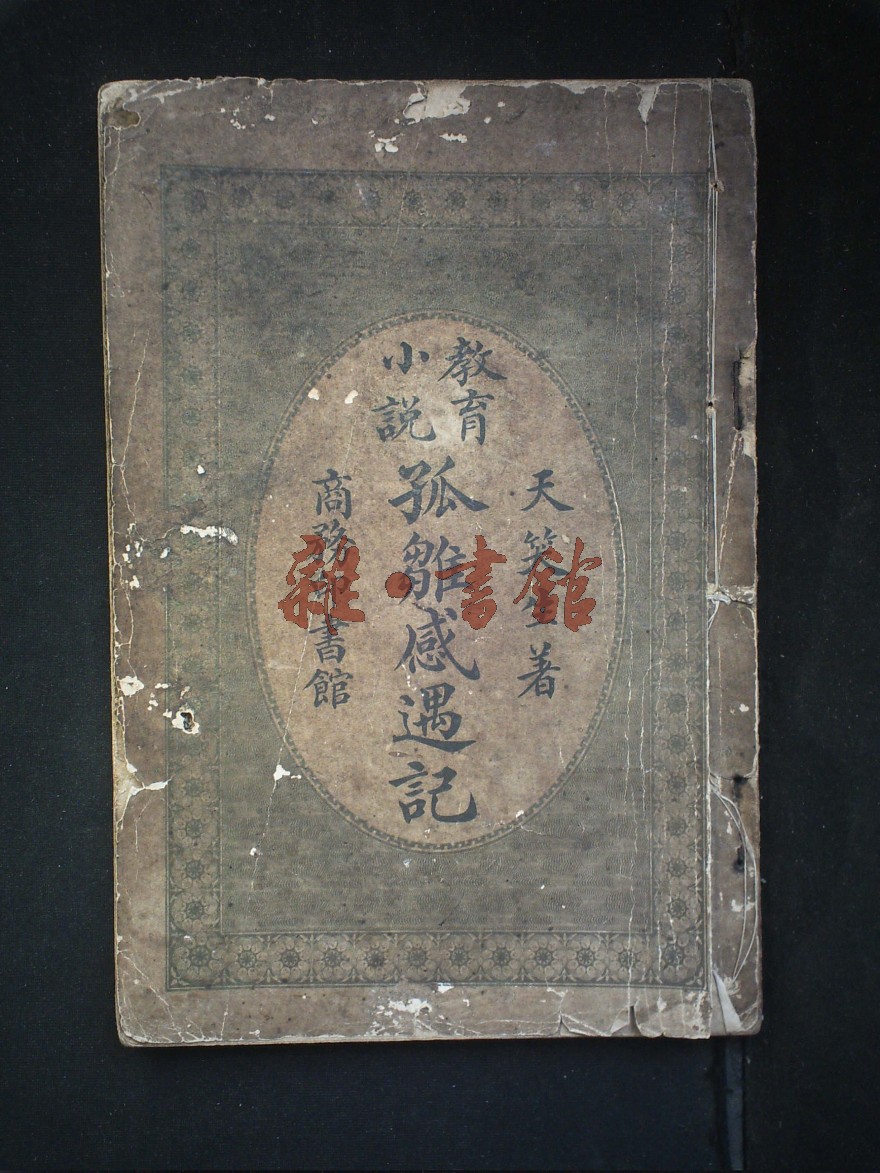 天笑生著
教育
小說
孤雛感遇記
商務印書館
雜·書館